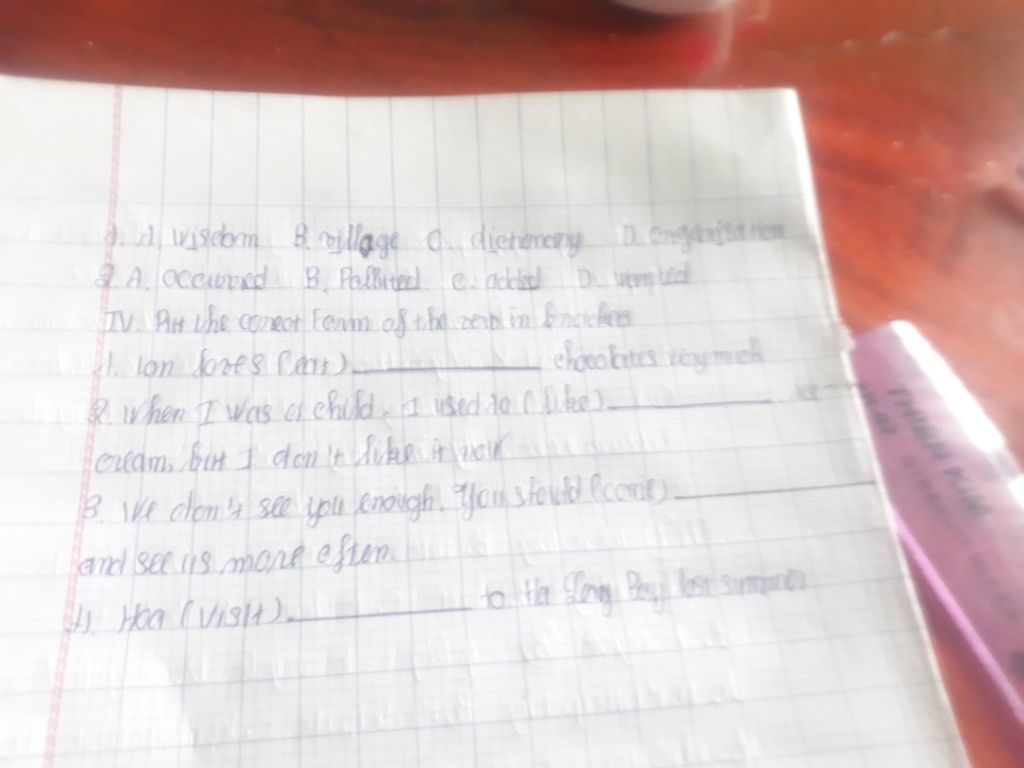 1. A. wisdom B. village C. dictionary D. organization
2. A. occurred B. Polluted C. added D. wanted
IV. Put the corect Form of the verb in brackets
1. Ian loves (eat) __________ chocolates very much
2. When I was a child, I used to (like) __________ ice
cream, but I don't like it now
3. We don't see you enough. You should (come) __________
and see us more often.
4. Hoa (visit) __________ to Ha Long Bay last summer
THIEN KIM